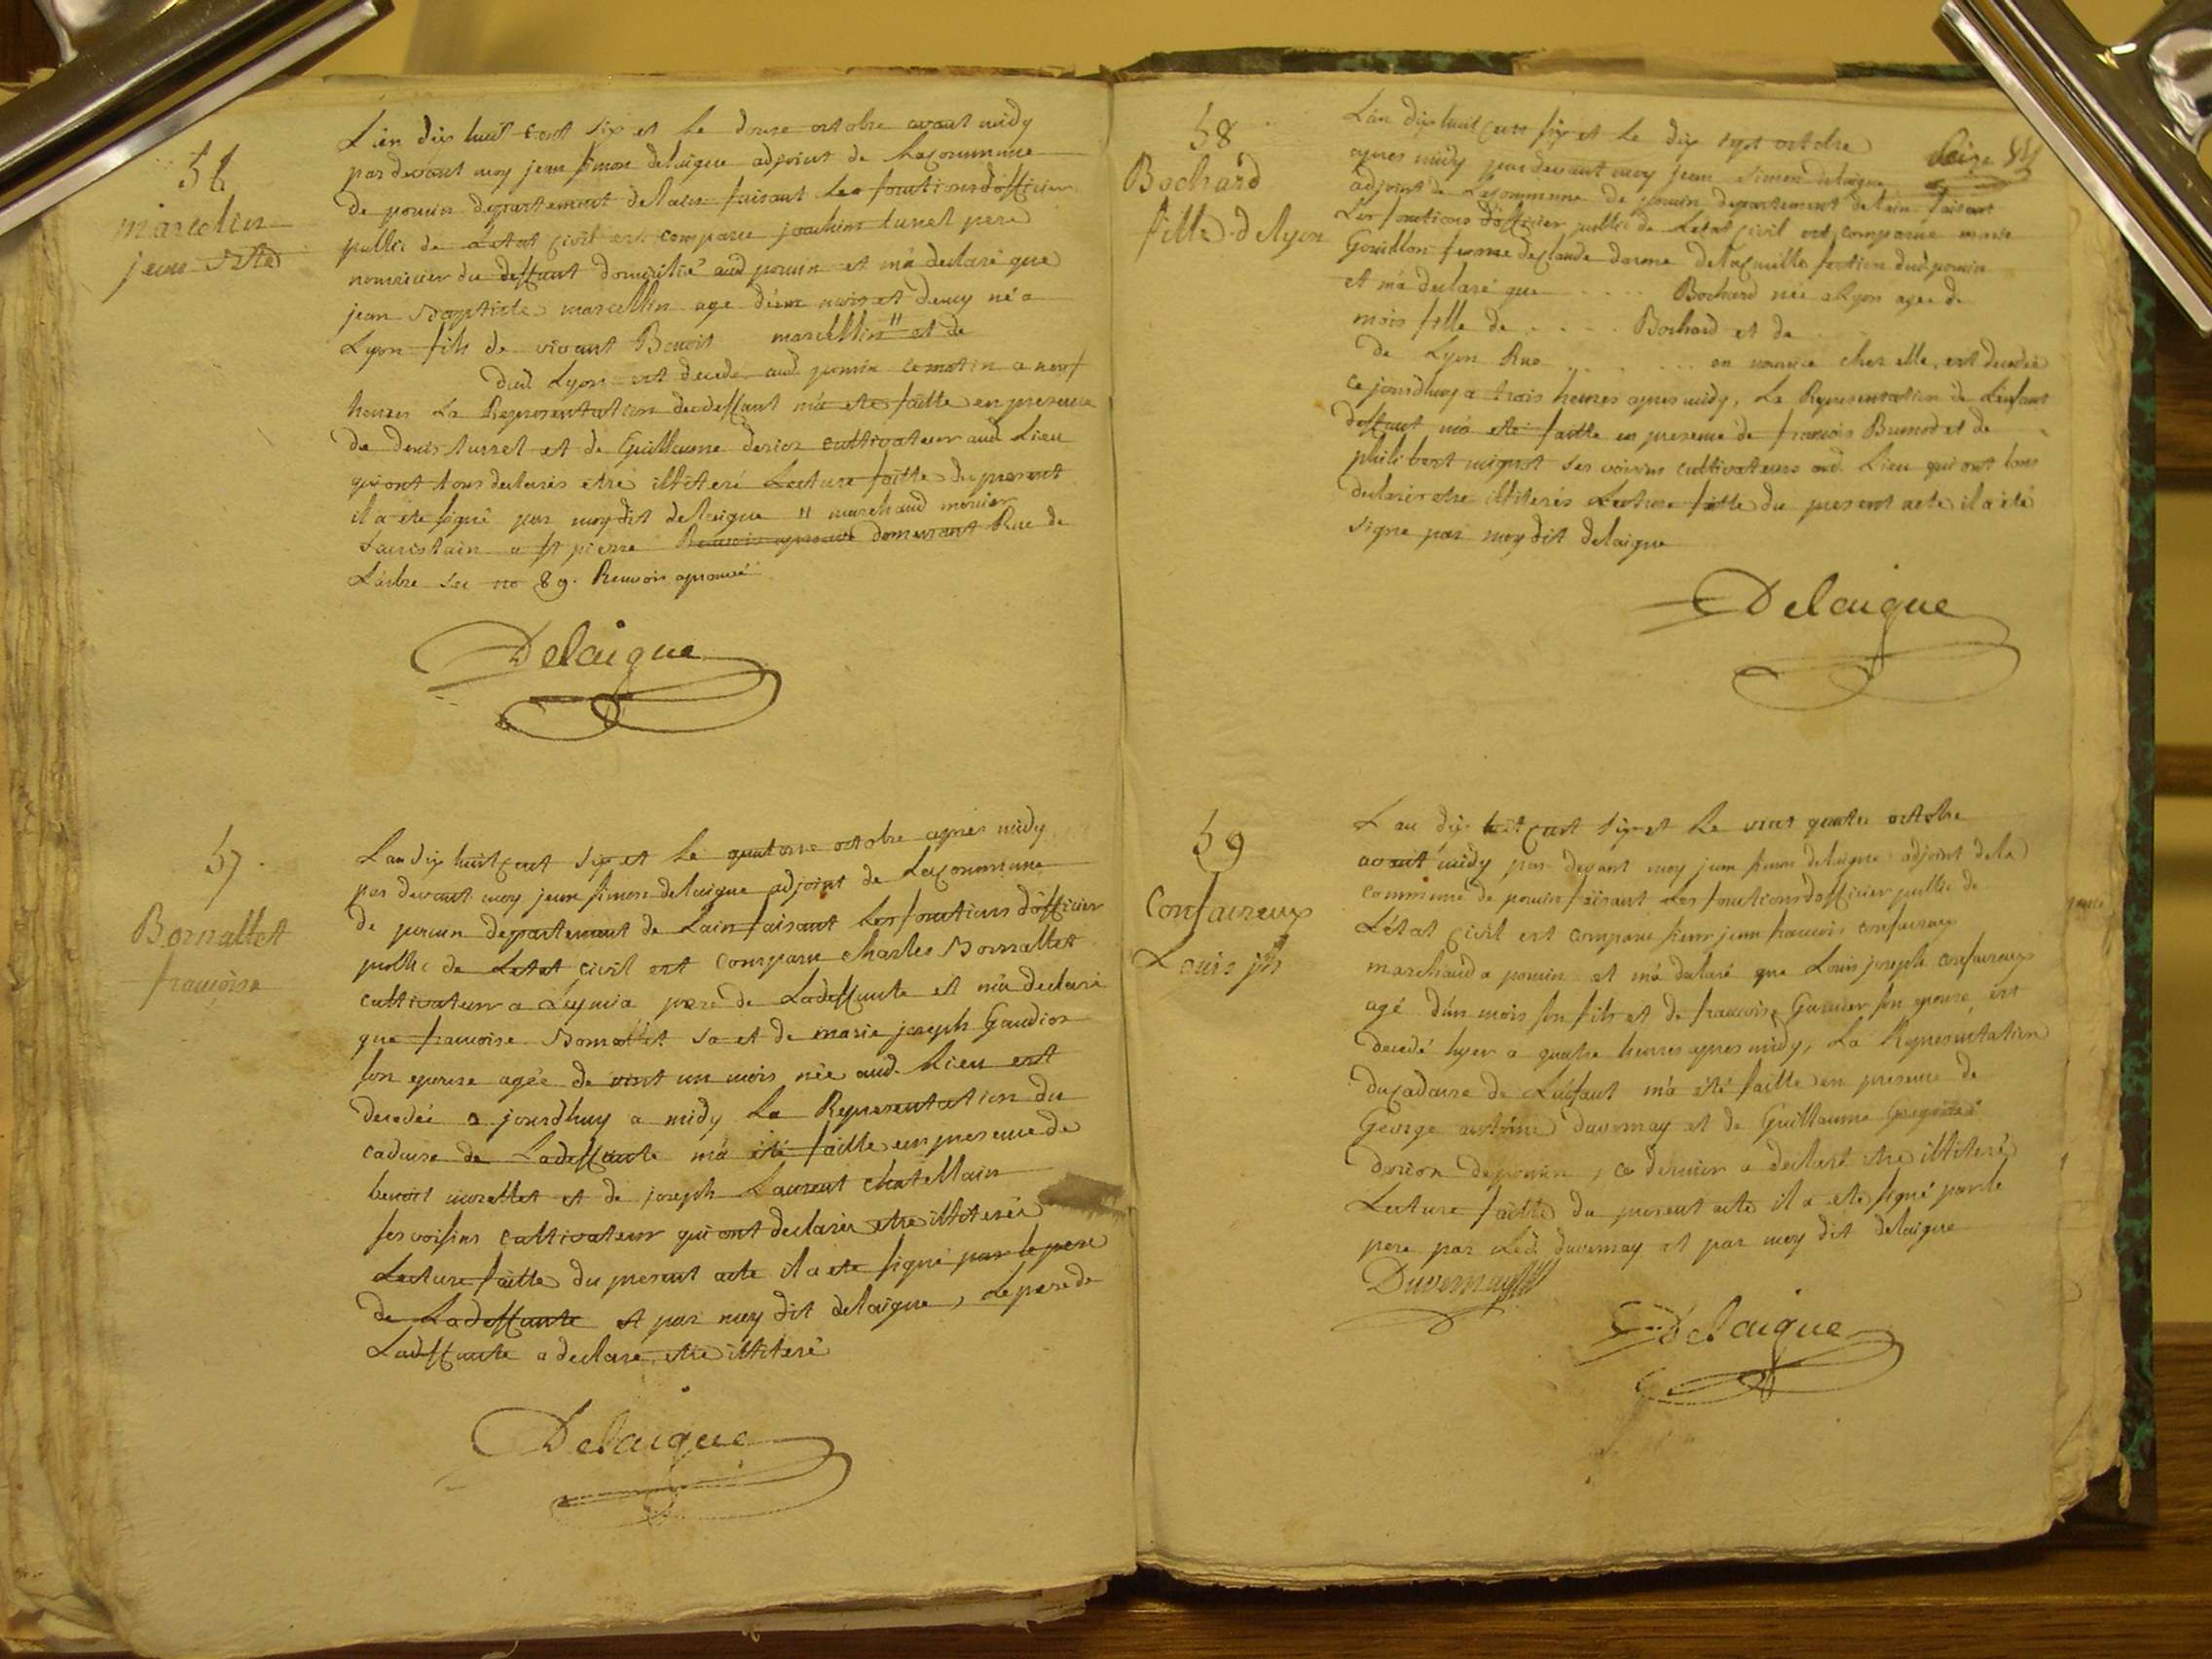 56
marcelin
jean Bte
L'an dix huit cent six et le douze octobre avant midy
par devant moy jean simon delaigue adjoint de la commune
de poncin departement de l'ain faisant les fonctions d'officier
public de l'etat civil est comparu joachim turrel pere
nourricier du deffunt domicilié aud poncin et m'a declaré que
jean Baptiste marcellin agé d'un mois et demy né a
Lyon fils de vivant Benoit marcelllin " et de
dud Lyon est decedé aud poncin ce matin a neuf
heures La Representation dud deffunt m'a eté faitte en presence
de denis turrel et de Guillaume derion cultivateur aud Lieu
qui ont tous declarés etre illiteré Lecture faitte du present
il a été signé par moy dit delaigue " marchand mercier
a st pierre Renvoi aprouvé demeurant Rue de
L'arbre sec no 89. Renvoi aprouvé
Delaigue
57
Bornallet
françoise
L'an dix huit cent six et le quatorze octobre apres midy
par devant moy jean simon delaigue adjoint de la commune
de poncin departement de Lain faisant les fonctions d'officier
public de Letat civil est comparu charles Bornallet
cultivateur a Leymia pere de Ladeffunte et m'a declaré
que francoise Bornallet sa et de marie joseph Gaudion
son epouse agée de vint un mois née aud. Lieu est
decedée a jourdhuy a midy La Representation du
cadavre de Ladeffunte m'a été faitte en presence de
benoit morellet et de joseph Laurent chatellain
ses voisins cultivateur qui ont declarés etre illiterés
Lecture faitte du present acte il a eté signé par le pere
de Ladeffunte et par moy dit delaigue, Le pere de
Ladeffunte a declaré etre illiteré
Delaigue
58
Bochard
fille d Lyon
L'an dix huit cent six et le dix sept octobre
apres midy par devant moy jean simon delaigue
adjoint de La commune de poncin departement de lain faisant
Les fonctions d'officier public de Letat civil est comparue marie
Gouillon femme de claude dorme section dud poncin
et m'a declaré que . . . . Bochard née a Lyon agée de
mois fille de . . . . Bochard et de
de Lyon Rue . . . . . . . en nourrice chez elle, est decedée
ce jourdhuy a trois heures apres midy, La Representation de L'enfant
deffunt m'a eté faitte en presence de francois Brunod et de
philibert mignot ses voisins cultivateurs aud. Lieu qui ont tous
declarés etre illiterés Lecture faitte du present acte il a été
signé par moy dit delaigue
Delaigue
59
Confavreux
Louis jph
L'an dix huit cent six et le vint quatre octobre
avant midy par devant moy jean simon delaigue adjoint de la
commune de poncin faisant Les fonctions d'officier public de
L'état civil est comparu sieur jean francois confavreux
marchand a poncin et m'a declaré que Louis joseph confavreux
agé d'un mois son fils et de francoise son epouse est
decedé hyer a quatre heures apres midy, La Representation
du cadavre de L'enfant m'a été faitte en presence de
George antoine duvernay et de Guillaume Gregoire
derion de poncin, ce dernier a declaré etre illiteré
Lecture faitte du present acte il a eté signé par le
pere par Led. duvernay et par moy dit delaigue
Duvernay
Delaigue